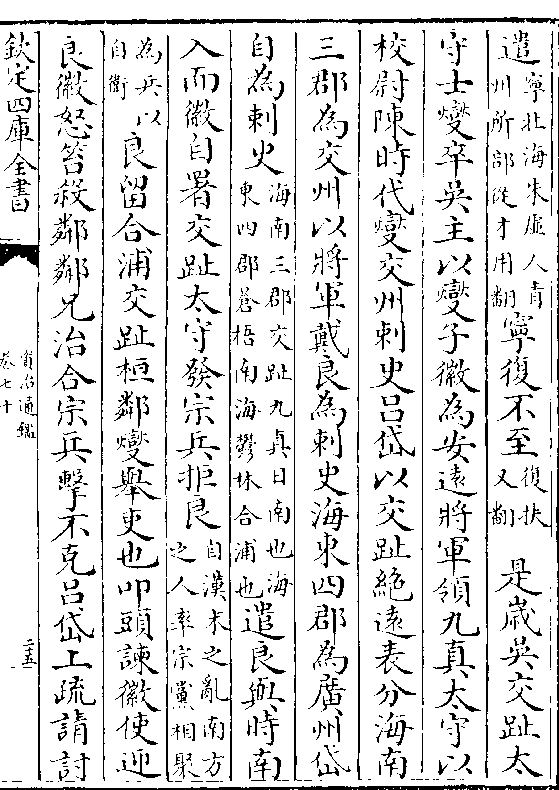 遣寧北海朱虛人青州所部從才用翻寧復不至復扶又翻　是歲吳交趾太
守士燮卒吳主以燮子徽為安遠將軍領九真太守以
校尉陳時代燮交州刺史呂岱以交趾絶遠表分海南
三郡為交州以將軍戴良為刺史海東四郡為廣州岱
自為刺史海南三郡交趾九真日南也海東四郡蒼梧南海鬱林合浦也遣良與時南
入而徽自署交趾太守發宗兵拒良自漢末之亂南方之人率宗黨相聚
為兵以自衛良留合浦交趾桓鄰燮舉吏也叩頭諫徽使迎
良徽怒笞殺鄰鄰兄治合宗兵擊不克呂岱上疏請討
欽定四庫全書
資治通鑑
卷七十
二五